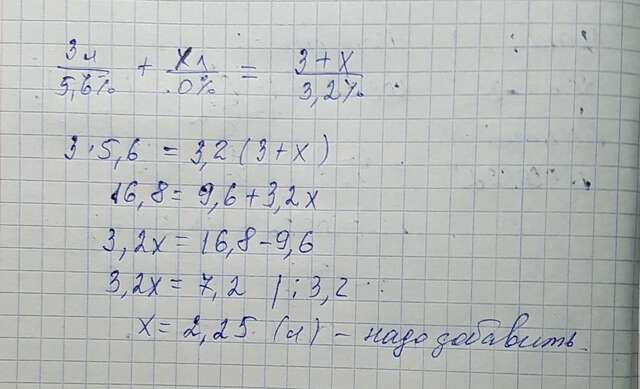 3л/5,6% + Xл/0% = 3+X/3,2%
3·5,6 = 3,2(3+X)
16,8 = 9,6+3,2X
3,2X = 16,8-9,6
3,2X = 7,2 |:3,2
X = 2,25 (л) - надо добавить.